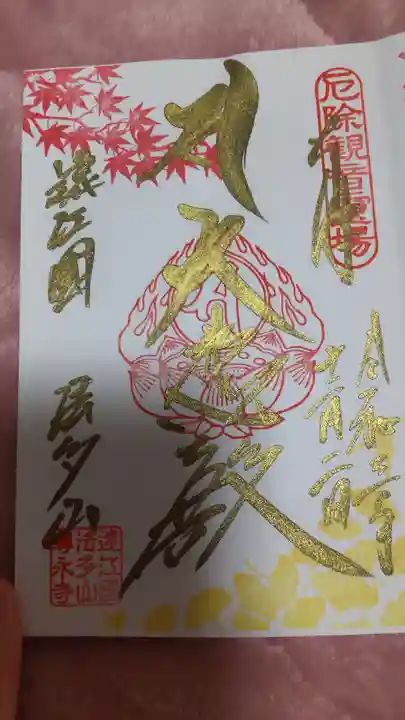 厄除観音霊場
奉拝
令和三年
十一月二日
大悲殿
遠江國
法多山
遠江國
法多山
尊永寺